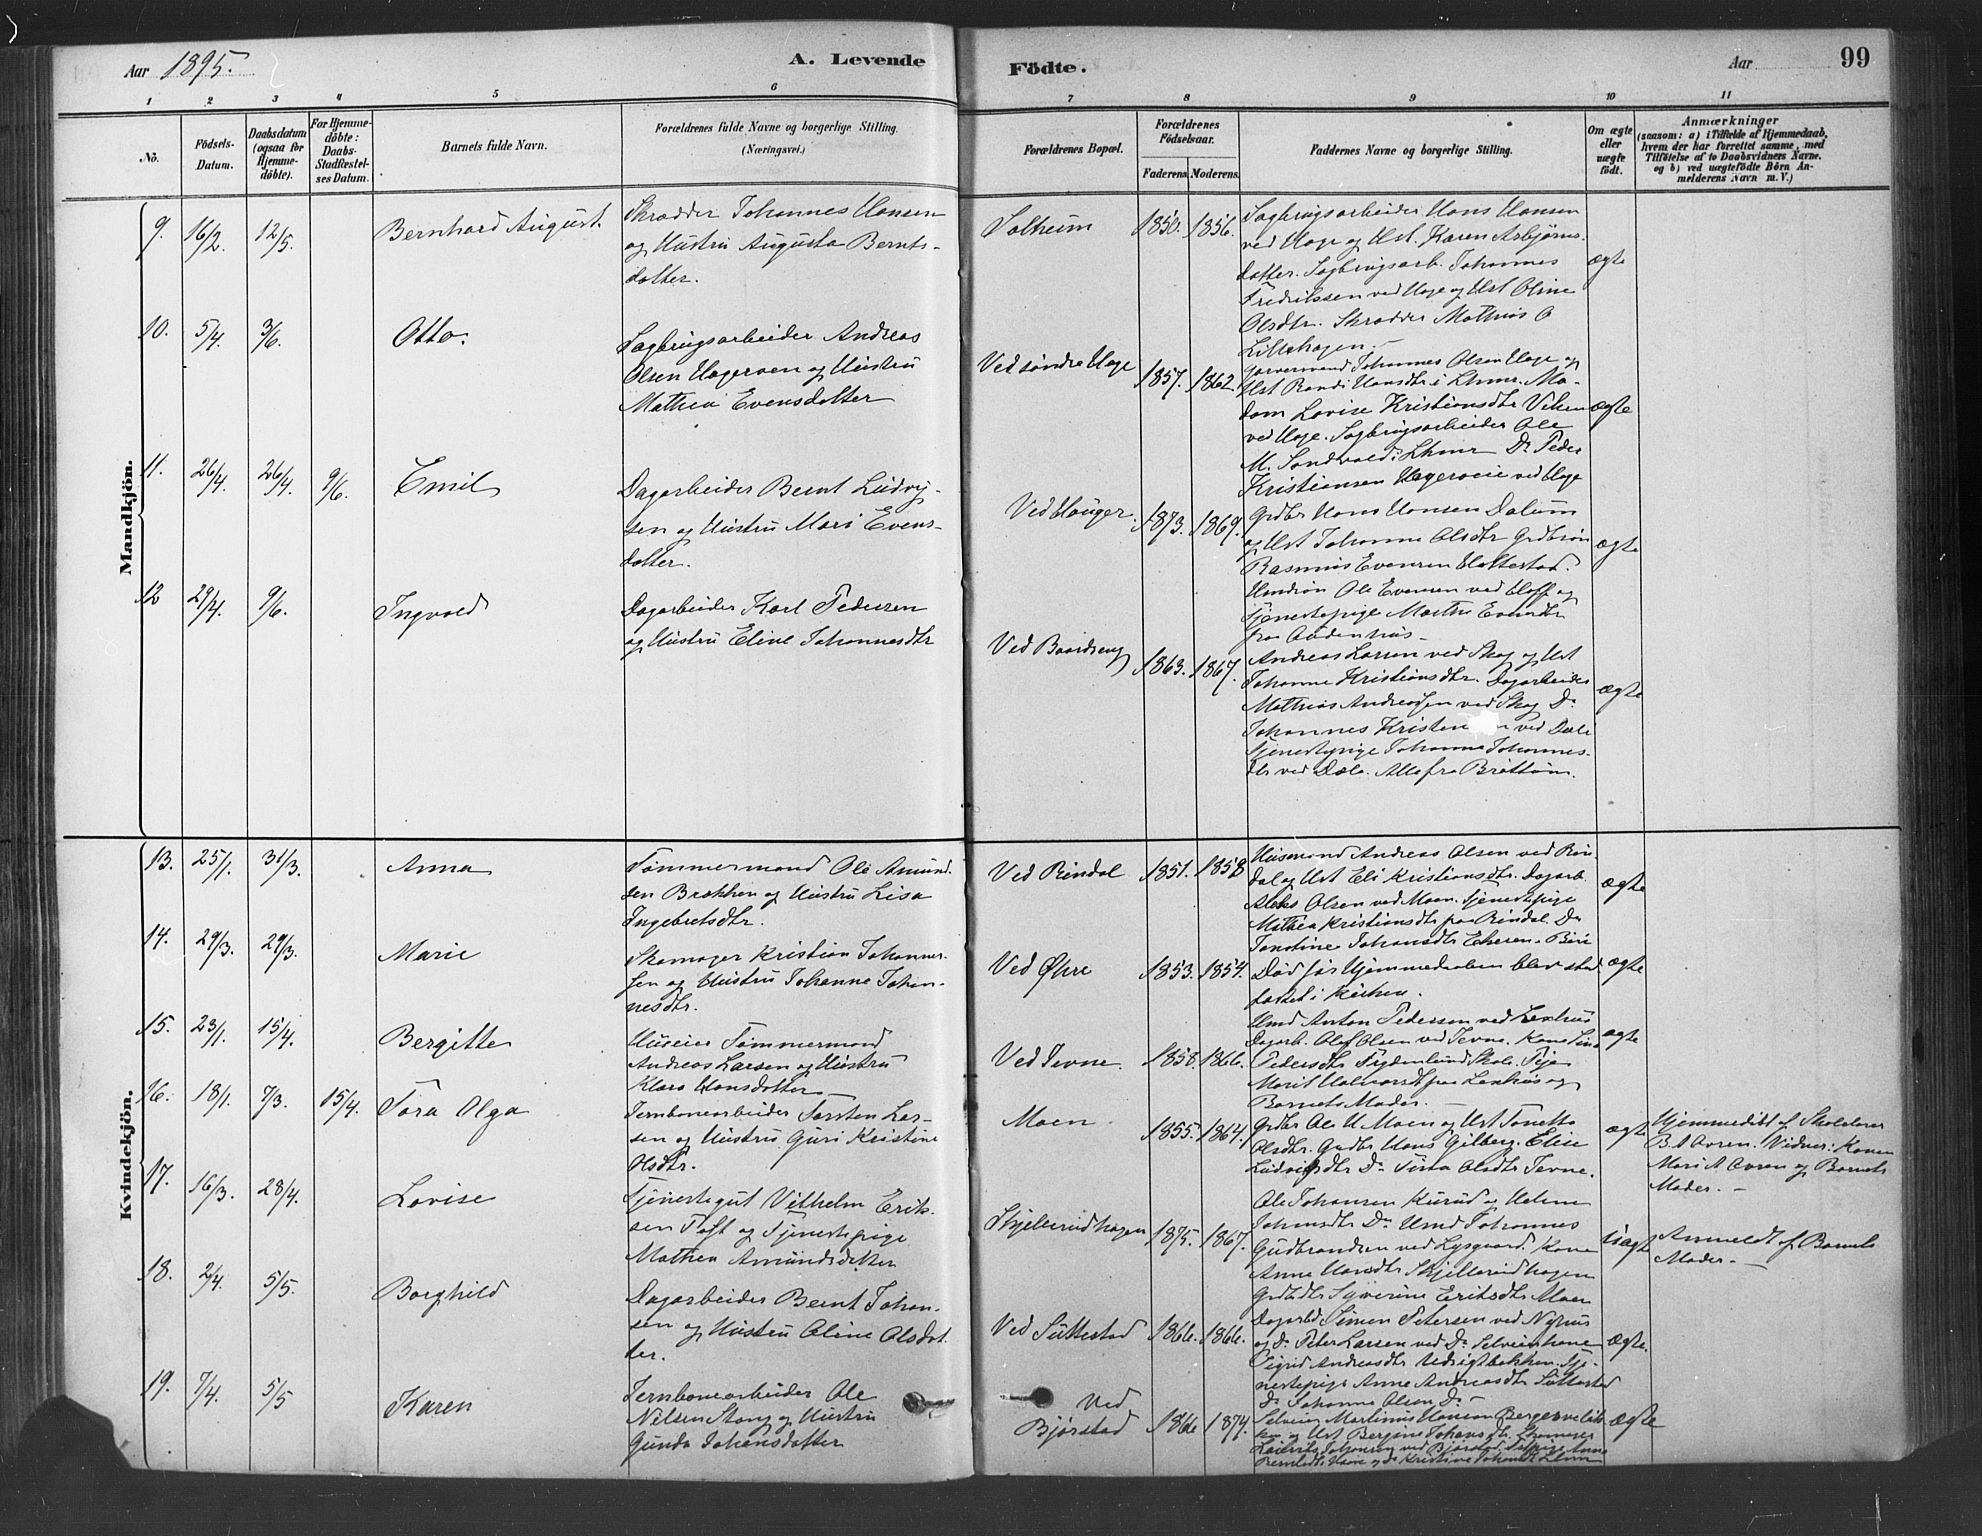 Aar 1895.
A. Levende
Födte.
Aar
99
1 2 3 4 5 6 7 8 9 10 11
No.
Födsels-
Datum.
Daabsdatum
(ogsaa for
Hjemme-
döbte).
For Hjemme-
döbte:
Daabs-
Stadfestel-
ses Datum.
Barnets fulde Navn.
Forældrenes fulde Navne og borgerlige Stilling.
(Næringsvei.)
Forældrenes Bopæl.
Forældrenes
Födselsaar.
Faderens. Moderens.
Faddernes Navne og borgerlige Stilling.
Om ægte
eller
uægte
födt.
Anmærkninger
(saasom: a) i Tilfælde af Hjemmedaab,
hvem der har forrettet samme, med
Tilföielse af to Daabsvidners Navne.
og b) ved uægtefödte Börn An-
melderens Navn m. V.)
Mandkjön.
9. 16/2. 12/5. Bernhard August.
Skrædder Johannes Hansen
og Hustru Augusta Bernts-
datter.
Solheim 1850. 1856.
Sagbrugsarbeider Hans Hansen
ved Hage og Hst. Karen Asbjørns-
datter. Sagbrugsarb. Johannes
Fredrikssen ved Hage og Hst Oline
Olsdtr. Skrædder Mathias O
Lillehagen.
ægte
10. 5/4. 3/6. Otto.
Sagbrugsarbeider Andreas
Olsen Hagerven og Hustru
Mathea Evensdatter
Ved søndre Hage 1857. 1862.
Garvermand Johannes Olsen Hage og
Hst Randi Hansdtr i Lhmr. Ma-
dam Lovise Kristiansdtr Viken
ved Hage. Sagbrugsarbeider Ole
M. Sandvold i Lhmr Do Peder
Kristiansen Hagerveie ved Hage
ægte
11. 26/4. 26/4. 9/6. Emil
Dagarbeider Bernt Ludvig-
sen og Hustru Mari Evens-
datter.
Ved Hauger. 1873. 1869.
Grdbr Hans Hansen Dalum
og Hst Johanne Olsdtr Grdbrsøn
Rasmus Evensen Hattestad.
Hmdsøn Ole Evensen ved Hoff og
Tjenestepige Marthe Evensdtr
fra Audenhus
ægte
12 29/4. 9/6. Ingvald
Dagarbeider Karl Pedersen
og Hustru Eline Johannesdtr
Ved Baardseng 1863. 1867.
Andreas Larsen ved Skog og Hst
Johanne Kristiansdtr. Dagarbeider
Mathias Andreassen ved Skog Do
Johannes Kristen ved Dale
Tjenestepige Johanne Johannes-
dtr ved Dale. Alle fra Brøttum.
ægte
Kvindekjön.
13. 25/1. 31/3. Anna
Tømmermand Ole Amund-
sen Brækken og Hustru Lisa
Ingebretsdtr.
Ved Rindal 1851. 1858
Husmand Andreas Olsen ved Rin-
dal og Hst Eli Kristiansdtr. Dagarb.
Olsen ved Moen. Tjenestepige
Mathea Kristiansdtr paa Rindal. Do
Johansdtr Biri
ægte
14. 29/3. 29/3. Marie
Skomager Kristian Johannes-
sen og Hustru Johanne Johan-
nesdtr.
Ved Øfre 1853. 1854.
Død før Hjemmedaaben blev stad-
fæstet i Kirken.
ægte
15. 23/1. 15/4. Bergitte
Huseier Tømmermand
Andreas Larsen og Hustru
Klara Hansdatter
Ved Jevne 1858. 1866.
Hmd Anton Pedersen ved Lexhus
Dagarb. Olaf Olsen ved Jevne. Kone Lina
Pedersdtr Frydenlund Skole. Pige
Marit Halvorsdtr paa Lexhus og
Barnets Moder.
ægte
16. 18/1. 7/3. 15/4. Tora Olga
Jernbanearbeider Torsten Lar-
sen og Hustru Guri Kristine
Olsdtr.
Moen 1855. 1864.
Grdbr Ole H Moen og Hst Tonetta
Olsdtr. Grdbr Hans Gilberg. Elise
Ludvigsdtr Do Tina Olsdtr Jevne.
ægte
Hjemmedøbt af Skolelærer
B. A Auren. Vidner: Konen
Mari A Auren og Barnets
Moder.
17. 16/3. 28/4. Lovise
Tjenestegut Vilhelm Erik-
sen Toft og Tjenestepige
Mathea Amundsdatter
Skjellerudhagen 1875. 1867.
Ole Johansen Kurud og Helene
Johansdtr Do Hmd Johannes
Gudbrandsen ved Lysgaard. Kone
Anne Hansdtr Skjellerudhagen
Grdbdtr Syverine Eriksdtr Moen
uægte
Anmeldt af Barnets
Moder.
18. 2/4. 5/5. Borghild
Dagarbeider Bernt Johan-
sen og Hustru Oline Olsdat-
ter.
Ved Suttestad 1866. 1866.
Dagarbd Simen Petersen ved Nyhus
og Do Peter Larsen ved Do Selveierkone
Sigrid Andreasdtr Udsigtbakken. Tje-
nestepige Anne Andreasdtr Suttestad
Do Johanna Olsen Do
ægte.
19. 7/4. 5/5 Karen
Jernbanearbeider Ole
Nilsen Stang og Hustru
Gunda Johansdatter
Ved
Bjørstad 1866 1874.
Selveier Martinus Hanson
og Hst Bergine Johansdtr.
Johansen ved Bjørstad.
ægte